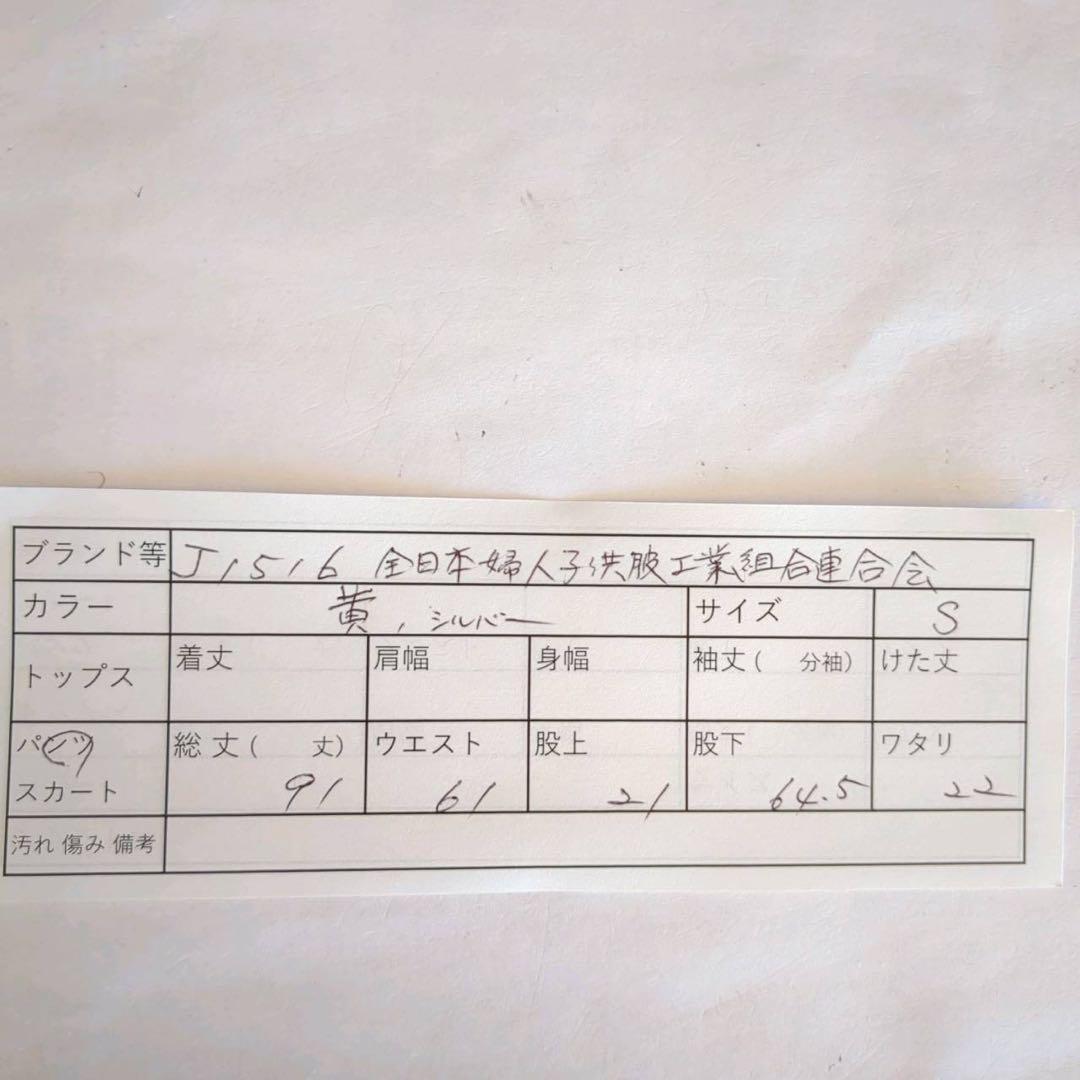 ブランド等 J1516 全日本婦人子供服工業組合連合会
カラー 黄、シルバー サイズ S
トップス 着丈 肩幅 身幅 袖丈( 分袖) けた丈
パンツ 総丈( 丈) ウエスト 股上 股下 ワタリ
スカート 91 61 21 64.5 22
汚れ 傷み 備考